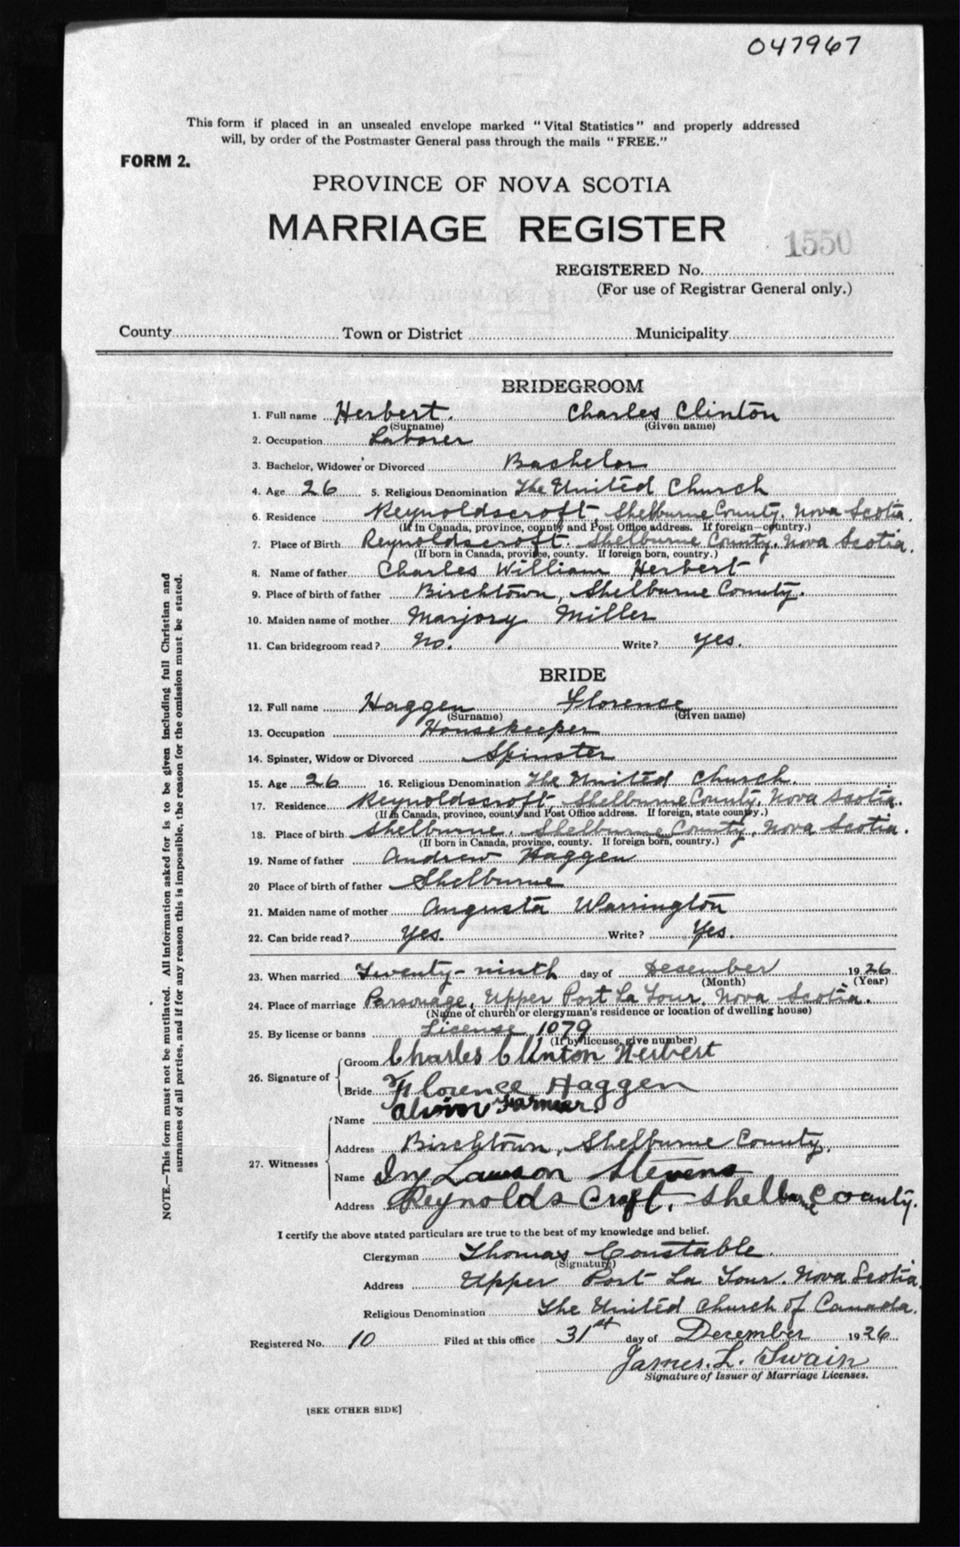 047967
This form if placed in an unsealed envelope marked "Vital Statistics" and properly addressed
will, by order of the Postmaster General pass through the mails "FREE."
FORM 2.
PROVINCE OF NOVA SCOTIA
MARRIAGE REGISTER
1550
REGISTERED No.
(For use of Registrar General only.)
County Town or District Municipality
BRIDEGROOM
1. Full name Herbert. Charles Clinton
(Surname) (Given name)
2. Occupation Laborer
3. Bachelor, Widower or Divorced Bachelor
4. Age 26 5. Religious Denomination The United Church
6. Residence Reynoldscroft Shelburne County, Nova Scotia.
(If in Canada, province, county and Post Office address. If foreign—country.)
7. Place of Birth Reynoldscroft. Shelburne County, Nova Scotia.
(If born in Canada, province, county. If foreign born, country.)
8. Name of father Charles William Herbert
9. Place of birth of father Birchtown, Shelburne County.
10. Maiden name of mother Marjory Miller
11. Can bridegroom read? No. Write? Yes.
BRIDE
12. Full name Haggen Florence
(Surname) (Given name)
13. Occupation Housekeeper
14. Spinster, Widow or Divorced Spinster
15. Age 26 16. Religious Denomination The United Church.
17. Residence Reynoldscroft, Shelburne County, Nova Scotia.
(If in Canada, province, county and Post Office address. If foreign, state country.)
18. Place of birth Shelburne, Shelburne County, Nova Scotia.
(If born in Canada, province, county. If foreign born, country.)
19. Name of father Andrew Haggen
20 Place of birth of father Shelburne
21. Maiden name of mother Augusta Warrington
22. Can bride read? Yes. Write? Yes.
23. When married Twenty-ninth day of December 1926
(Month) (Year)
24. Place of marriage Parsonage, Upper Port La Tour, Nova Scotia.
(Name of church or clergyman's residence or location of dwelling house)
25. By license or banns License 1079
(If by license, give number)
26. Signature of Groom Charles Clinton Herbert
Bride Florence Haggen
27. Witnesses Name Farmer
Address Birchtown, Shelburne County,
Name Lawson Stevens
Address Reynolds Croft, Shelburne County.
I certify the above stated particulars are true to the best of my knowledge and belief.
Clergyman Thomas Constable.
(Signature)
Address Upper Port La Tour, Nova Scotia
Religious Denomination The United Church of Canada.
Registered No. 10 Filed at this office 31st day of December 1926
James. L. Swain
Signature of Issuer of Marriage Licenses.
[SEE OTHER SIDE]
NOTE.—This form must not be mutilated. All information asked for is to be given including full Christian and
surnames of all parties, and if for any reason this is impossible, the reason for the omission must be stated.